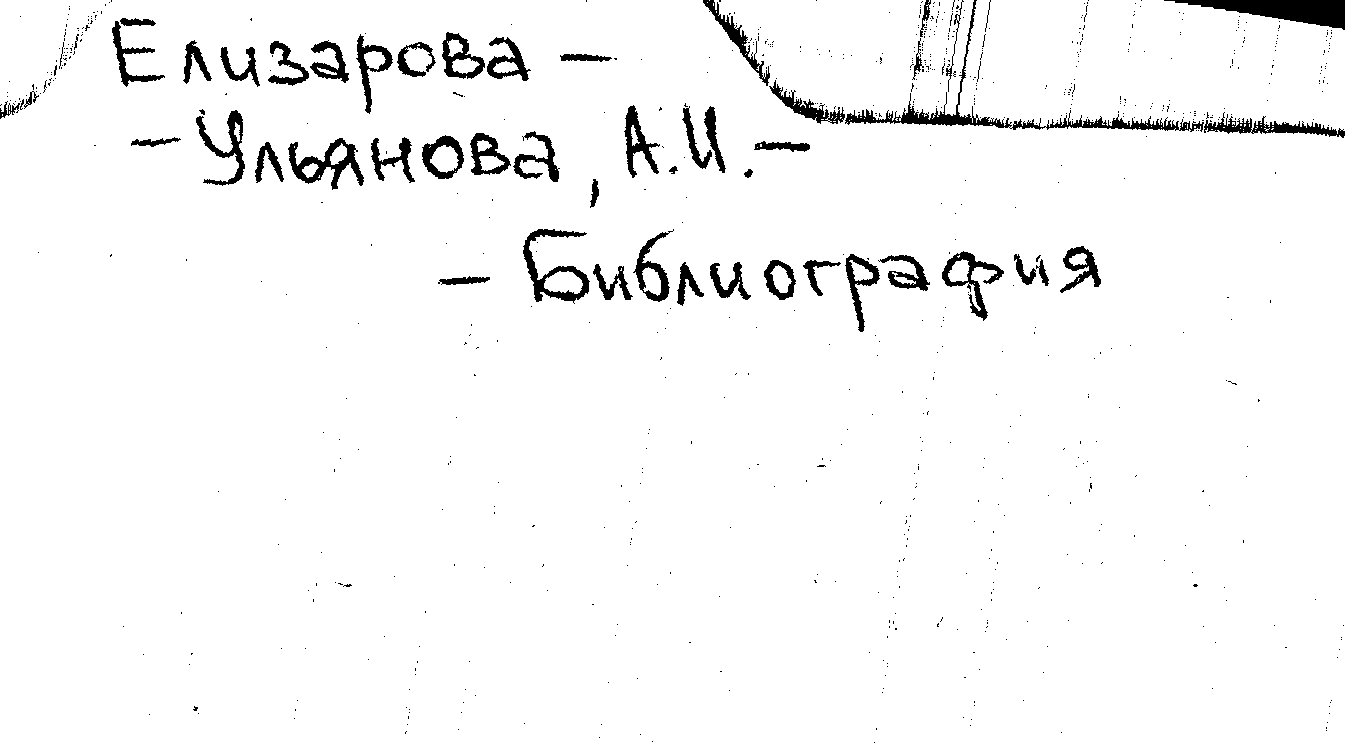 Елизарова –
– Ульянова, А.И. –
– Библиография